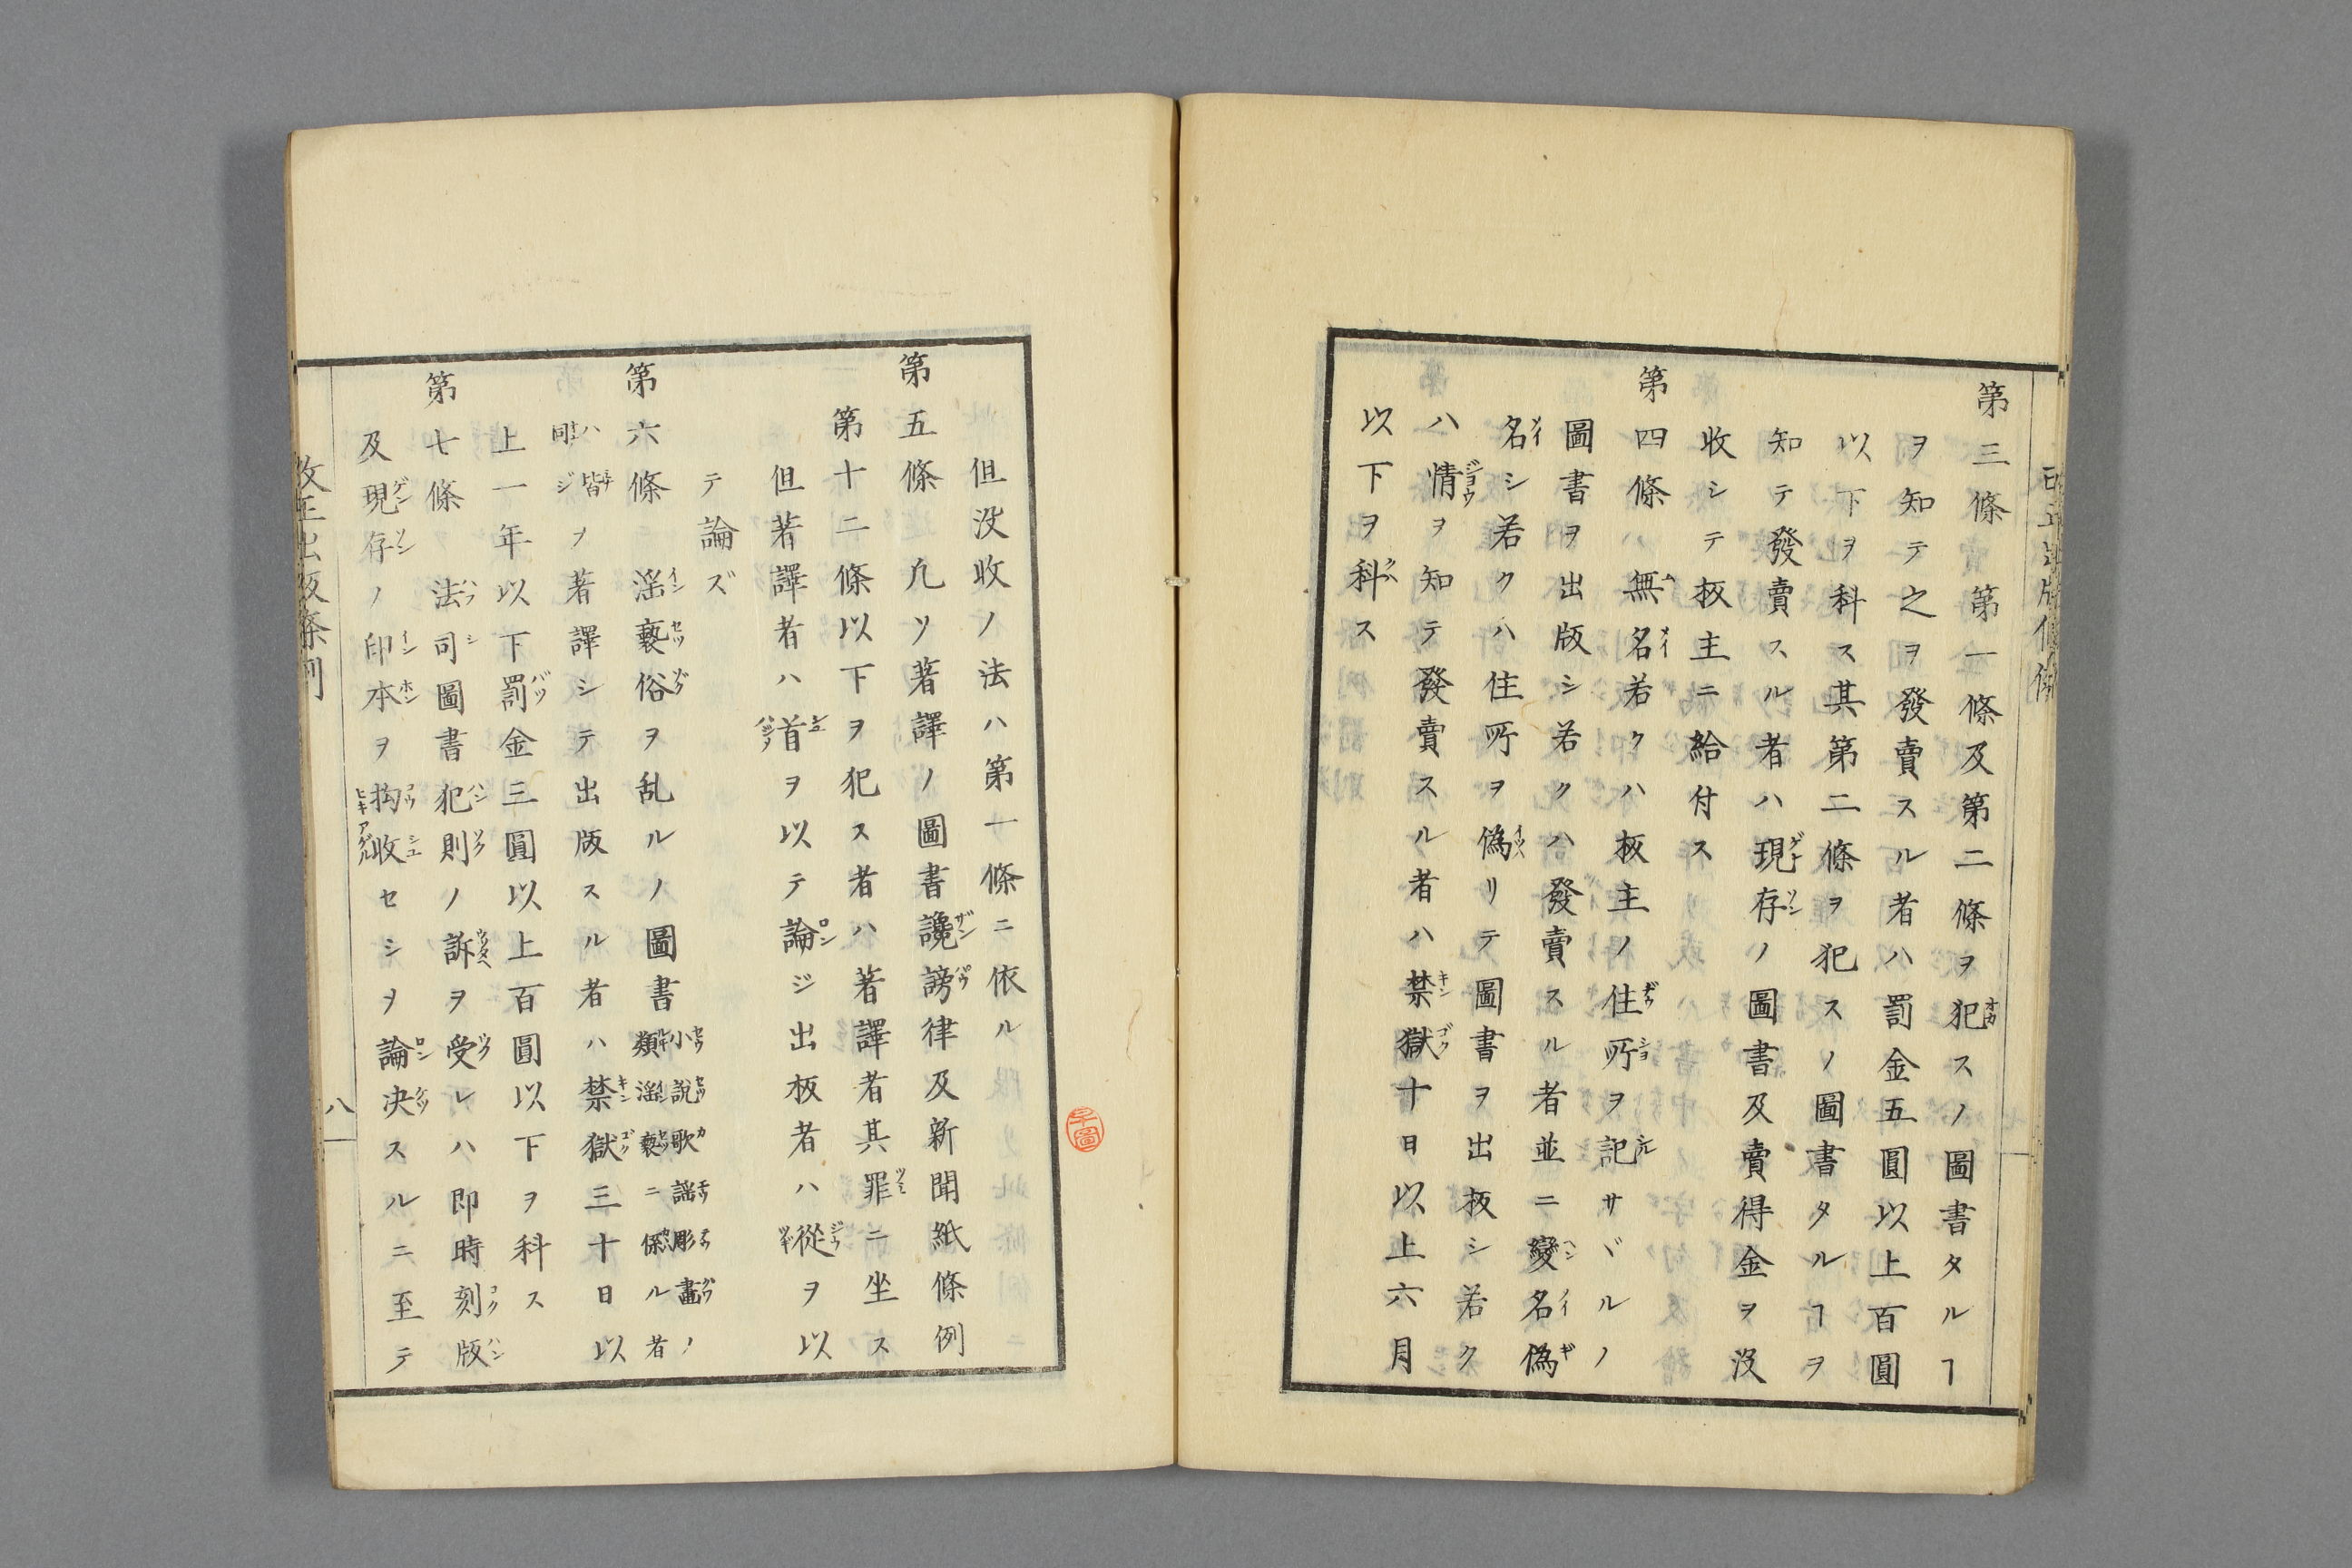 第三條 第一條及第二條ヲ犯スノ圖書タルヿ
ヲ知テ之ヲ發賣スル者ハ罰金五圓以上百圓
以下ヲ科ス其第二條ヲ犯スノ圖書タルヿヲ
知テ發賣スル者ハ現存ノ圖書及賣得金ヲ沒
收シテ板主ニ給付ス
第四條 無名若クハ板主ノ住所ヲ記サヾルノ
圖書ヲ出版シ若クハ發賣スル者並ニ變名偽
名シ若クハ住所ヲ偽リテ圖書ヲ出板シ若ク
ハ情ヲ知テ發賣スル者ハ禁獄十日以上六月
以下ヲ科ス
但沒收ノ法ハ第一條ニ依ル
第五條 凢ソ著譯ノ圖書讒謗律及新聞紙條例
第十二條以下ヲ犯ス者ハ著譯者其罪ニ坐ス
但著譯者ハ首ヲ以テ論ジ出板者ハ從ヲ以
テ論ズ
第六條 淫褻俗ヲ乱ルノ圖書小說歌謡彫畫ノ
類淫褻ニ係ル者
ハ皆
同ジヲ著譯シテ出版スル者ハ禁獄三十日以
上一年以下罰金三圓以上百圓以下ヲ科ス
第七條 法司圖書犯則ノ訴ヲ受レハ即時刻版
及現存ノ印本ヲ拘收セシヲ論決スルニ至テ
改正出版条例
八